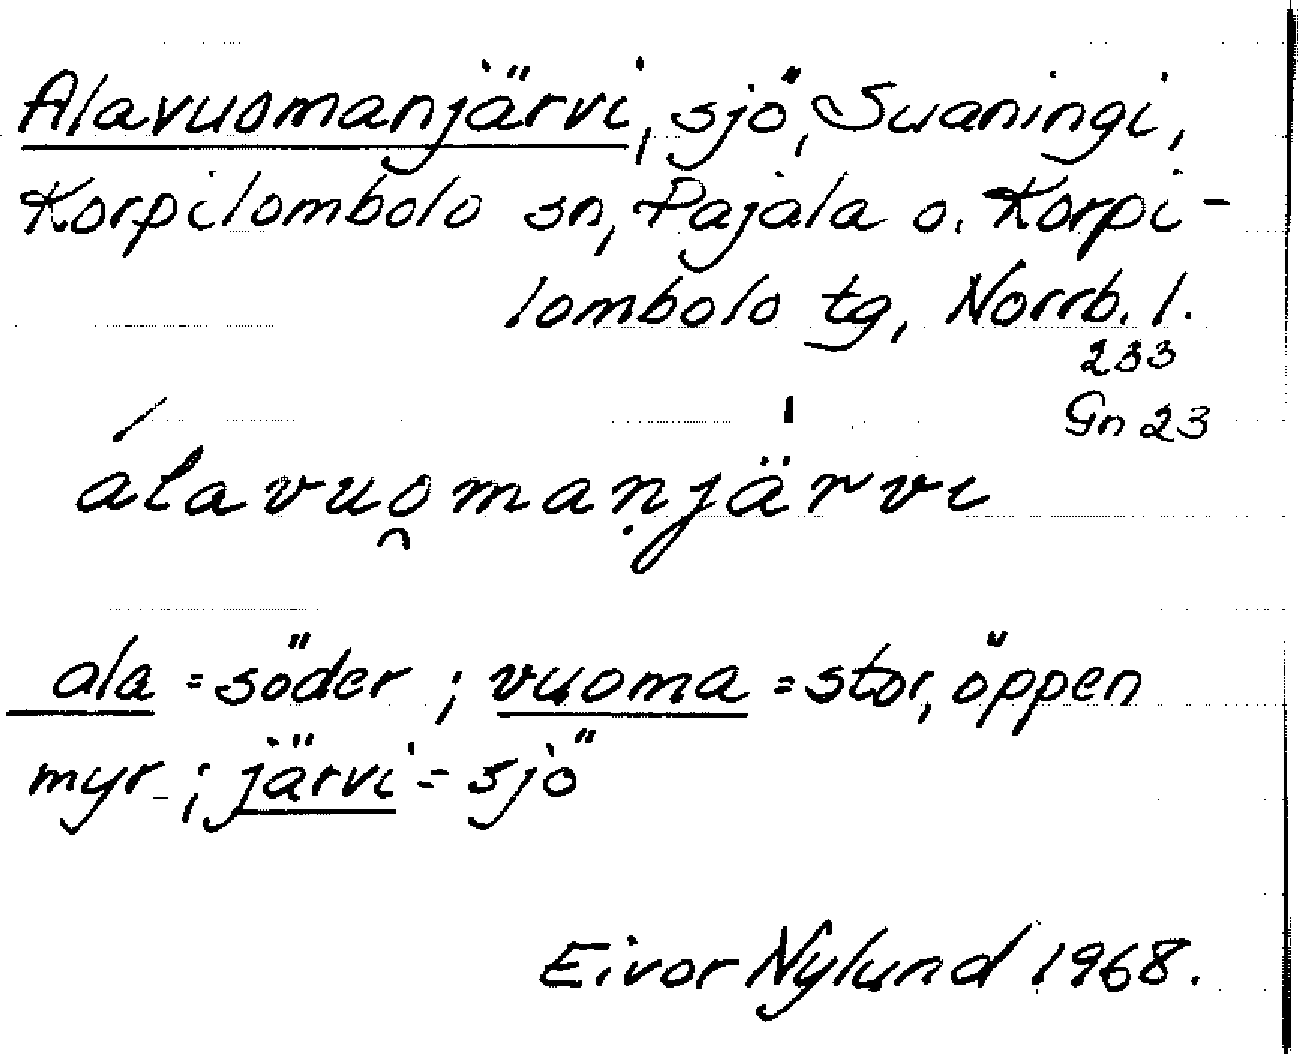 Alavuomanjärvi, sjö, Suaningi,
Korpilombolo sn, Pajala o. Korpi-
lombolo tg, Norrb. l.
233
Gn 23
álavuo̯maṇjä̍rvi
ala = söder ; vuoma = stor, öppen
myr ; järvi = sjö
Eivor Nylund 1968.